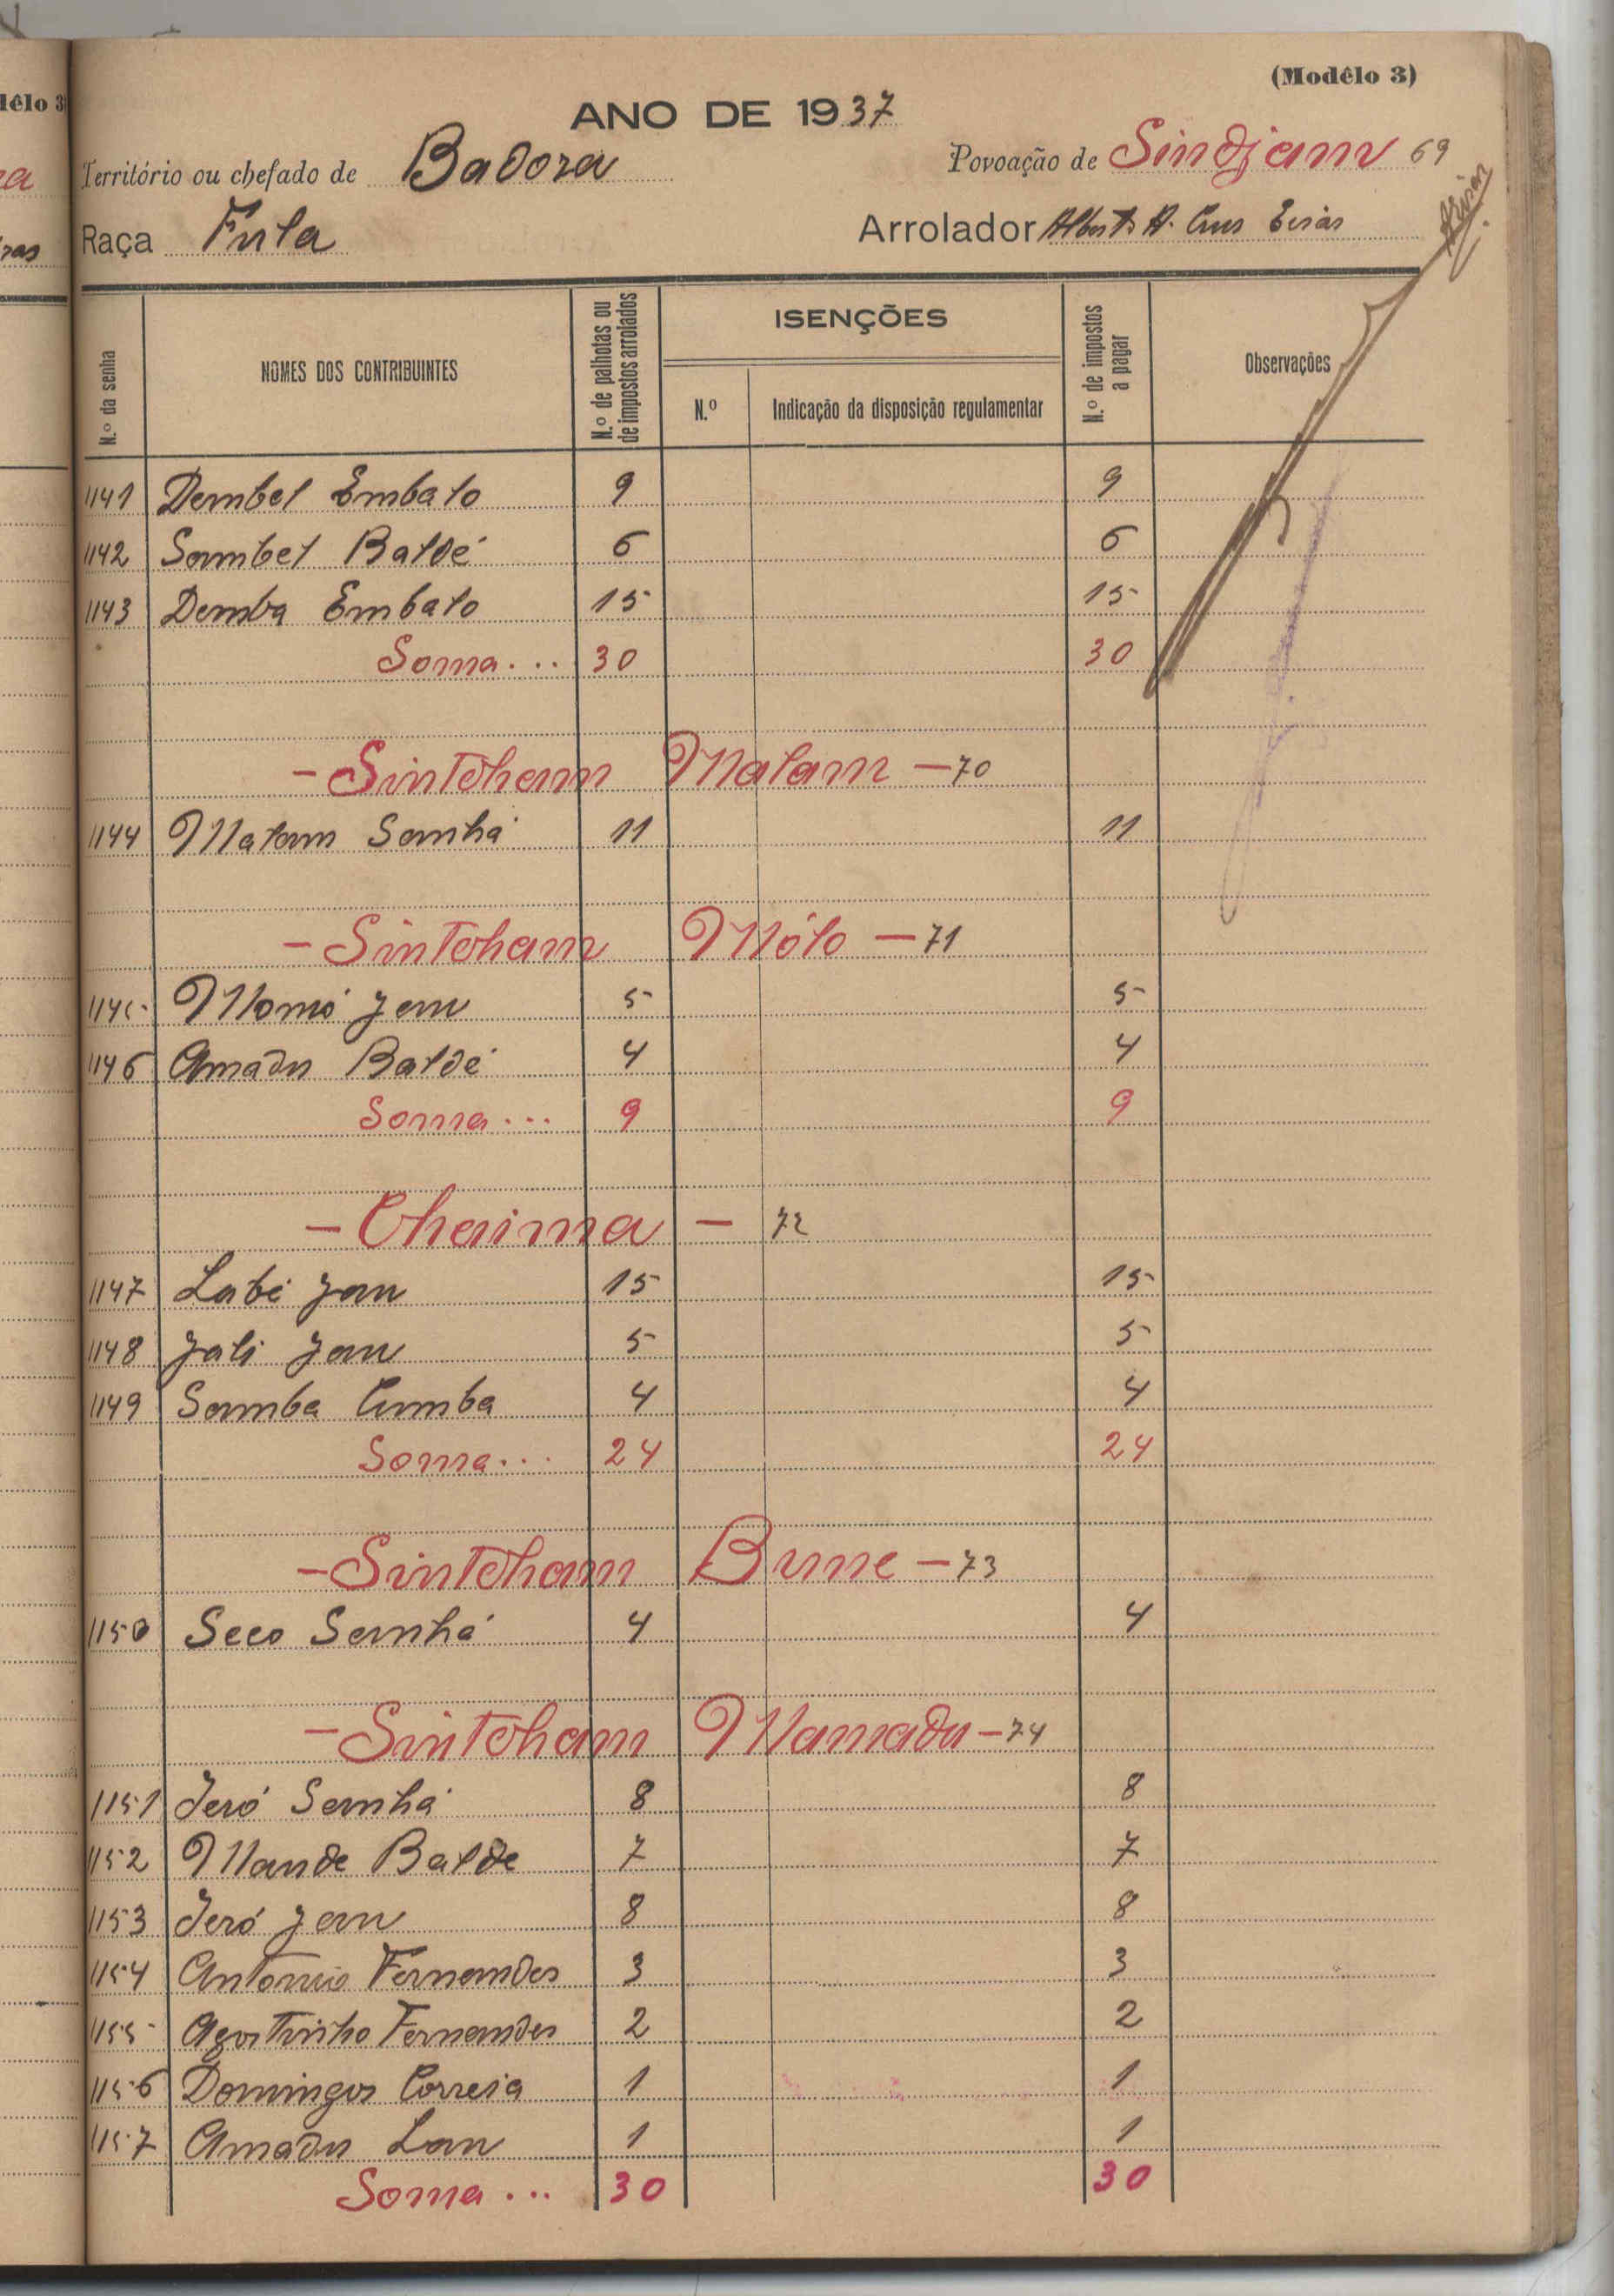 (Modêlo 3)
ANO DE 1937
Território ou chefado de Badora
Povoação de Sindjam 69
Raça Fula
Arrolador Alberto A. Crus Eiras
N.º da senha
NOMES DOS CONTRIBUINTES
N.º de palhotas ou de impostos arrolados
ISENÇÕES
N.º
Indicação da disposição regulamentar
N.º de impostos a pagar
Observações
1141 Dembel Embalo 9 9
1142 Sambel Baldé 6 6
1143 Demba Embalo 15 15
Soma... 30 30
- Sintcham Malam - 70
1144 Malam Sanhá 11 11
- Sintcham Mólo - 71
1145 Momó Jau 5 5
1146 Amadu Baldé 4 4
Soma... 9 9
- Chaima - 72
1147 Labé Jau 15 15
1148 Jali Jau 5 5
1149 Samba Cumba 4 4
Soma... 24 24
- Sintcham Brune - 73
1150 Seco Sanhá 4 4
- Sintcham Mamadu - 74
1151 Jeró Sanhá 8 8
1152 Mande Balde 7 7
1153 Jeró Jau 8 8
1154 Antonio Fernandes 3 3
1155 Agostinho Fernandes 2 2
1156 Domingos Correia 1 1
1157 Amadu Lau 1 1
Soma... 30 30